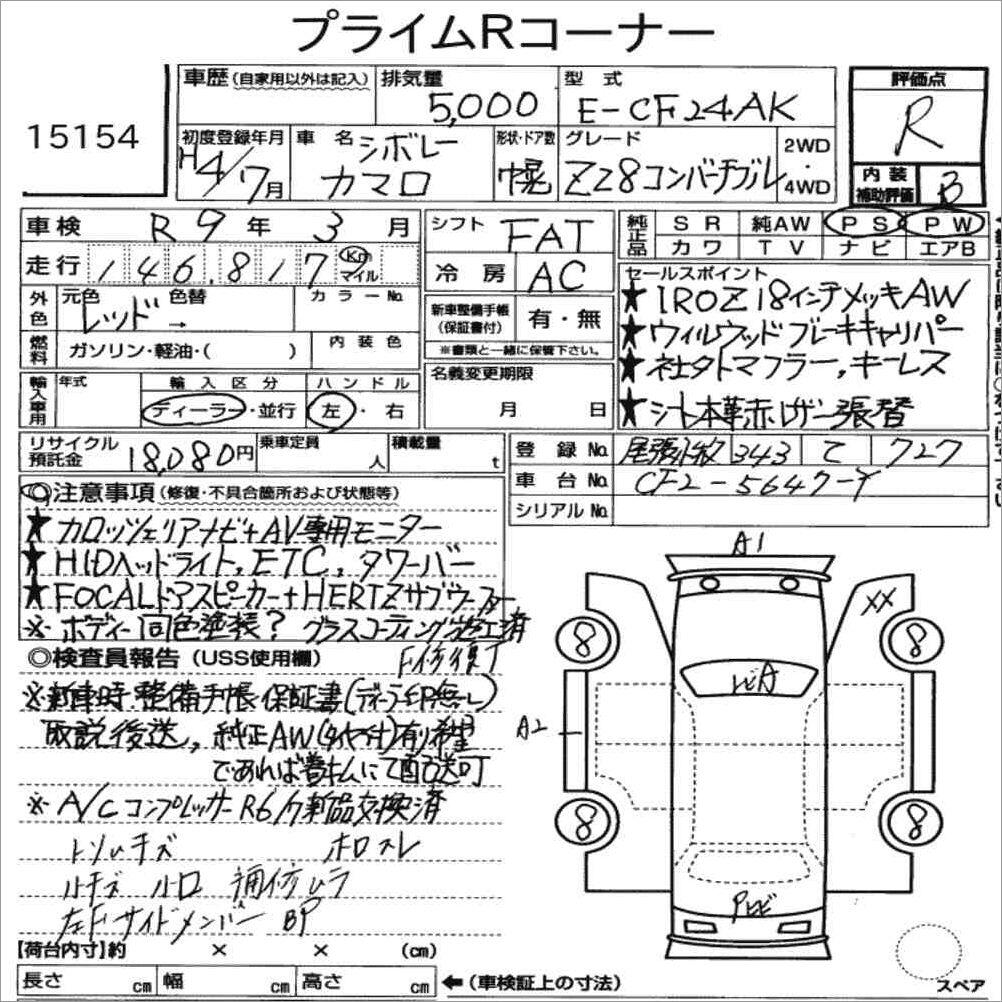 プライムRコーナー
15154
車歴 (自家用以外は記入)
排気量 5,000
型式 E-CF24AK
評価点 R
初度登録年月 H4/7月
車名 シボレー カマロ
形状・ドア数 幌
グレード Z28コンバーチブル
2WD・4WD
内装補助評価 B
車検 R9年3月
シフト FAT
純正品 SR 純AW PS PW
カワ TV ナビ エアB
走行 146,817 Km マイル
冷房 AC
セールスポイント
★IROZ18インチメッキAW
★ウィルウッドブレーキキャリパー
★社外マフラー,キーレス
★シート本革赤レザー張替
外色 元色 レッド 色替 → カラーNo.
新車整備手帳(保証書付) 有・無
※書類と一緒に保管下さい。
燃料 ガソリン・軽油・( ) 内装色
名義変更期限 月 日
輸入車用 年式 輸入区分 ディーラー・並行 ハンドル 左・右
リサイクル預託金 18,080円 乗車定員 人 積載量 t
登録No. 尾張小牧 343 て 727
車台No. CF2-5647-Y
シリアルNo.
◎注意事項 (修復・不具合箇所および状態等)
★カロッツェリアナビ+AV専用モニター
★HIDヘッドライト,ETC,タワーバー
★FOCALドアスピーカー+HERTZサブウーファー
※ボディー同色塗装? グラスコーティング施工済
◎検査員報告 (USS使用欄) F修復
※新車時整備手帳保証書(ディーラー印無し)
取説後送,純正AW(タイヤ付)有り希望
であれば着払いにて配送可
※A/CコンプレッサーR6/7新品交換済
キズ ホロスレ
小キズ 補修ムラ
左Fサイドメンバー BP
A1
XX
8
8
A2
8
8
【荷台内寸】約 × × (cm)
長さ cm 幅 cm 高さ cm ←(車検証上の寸法)
スペア